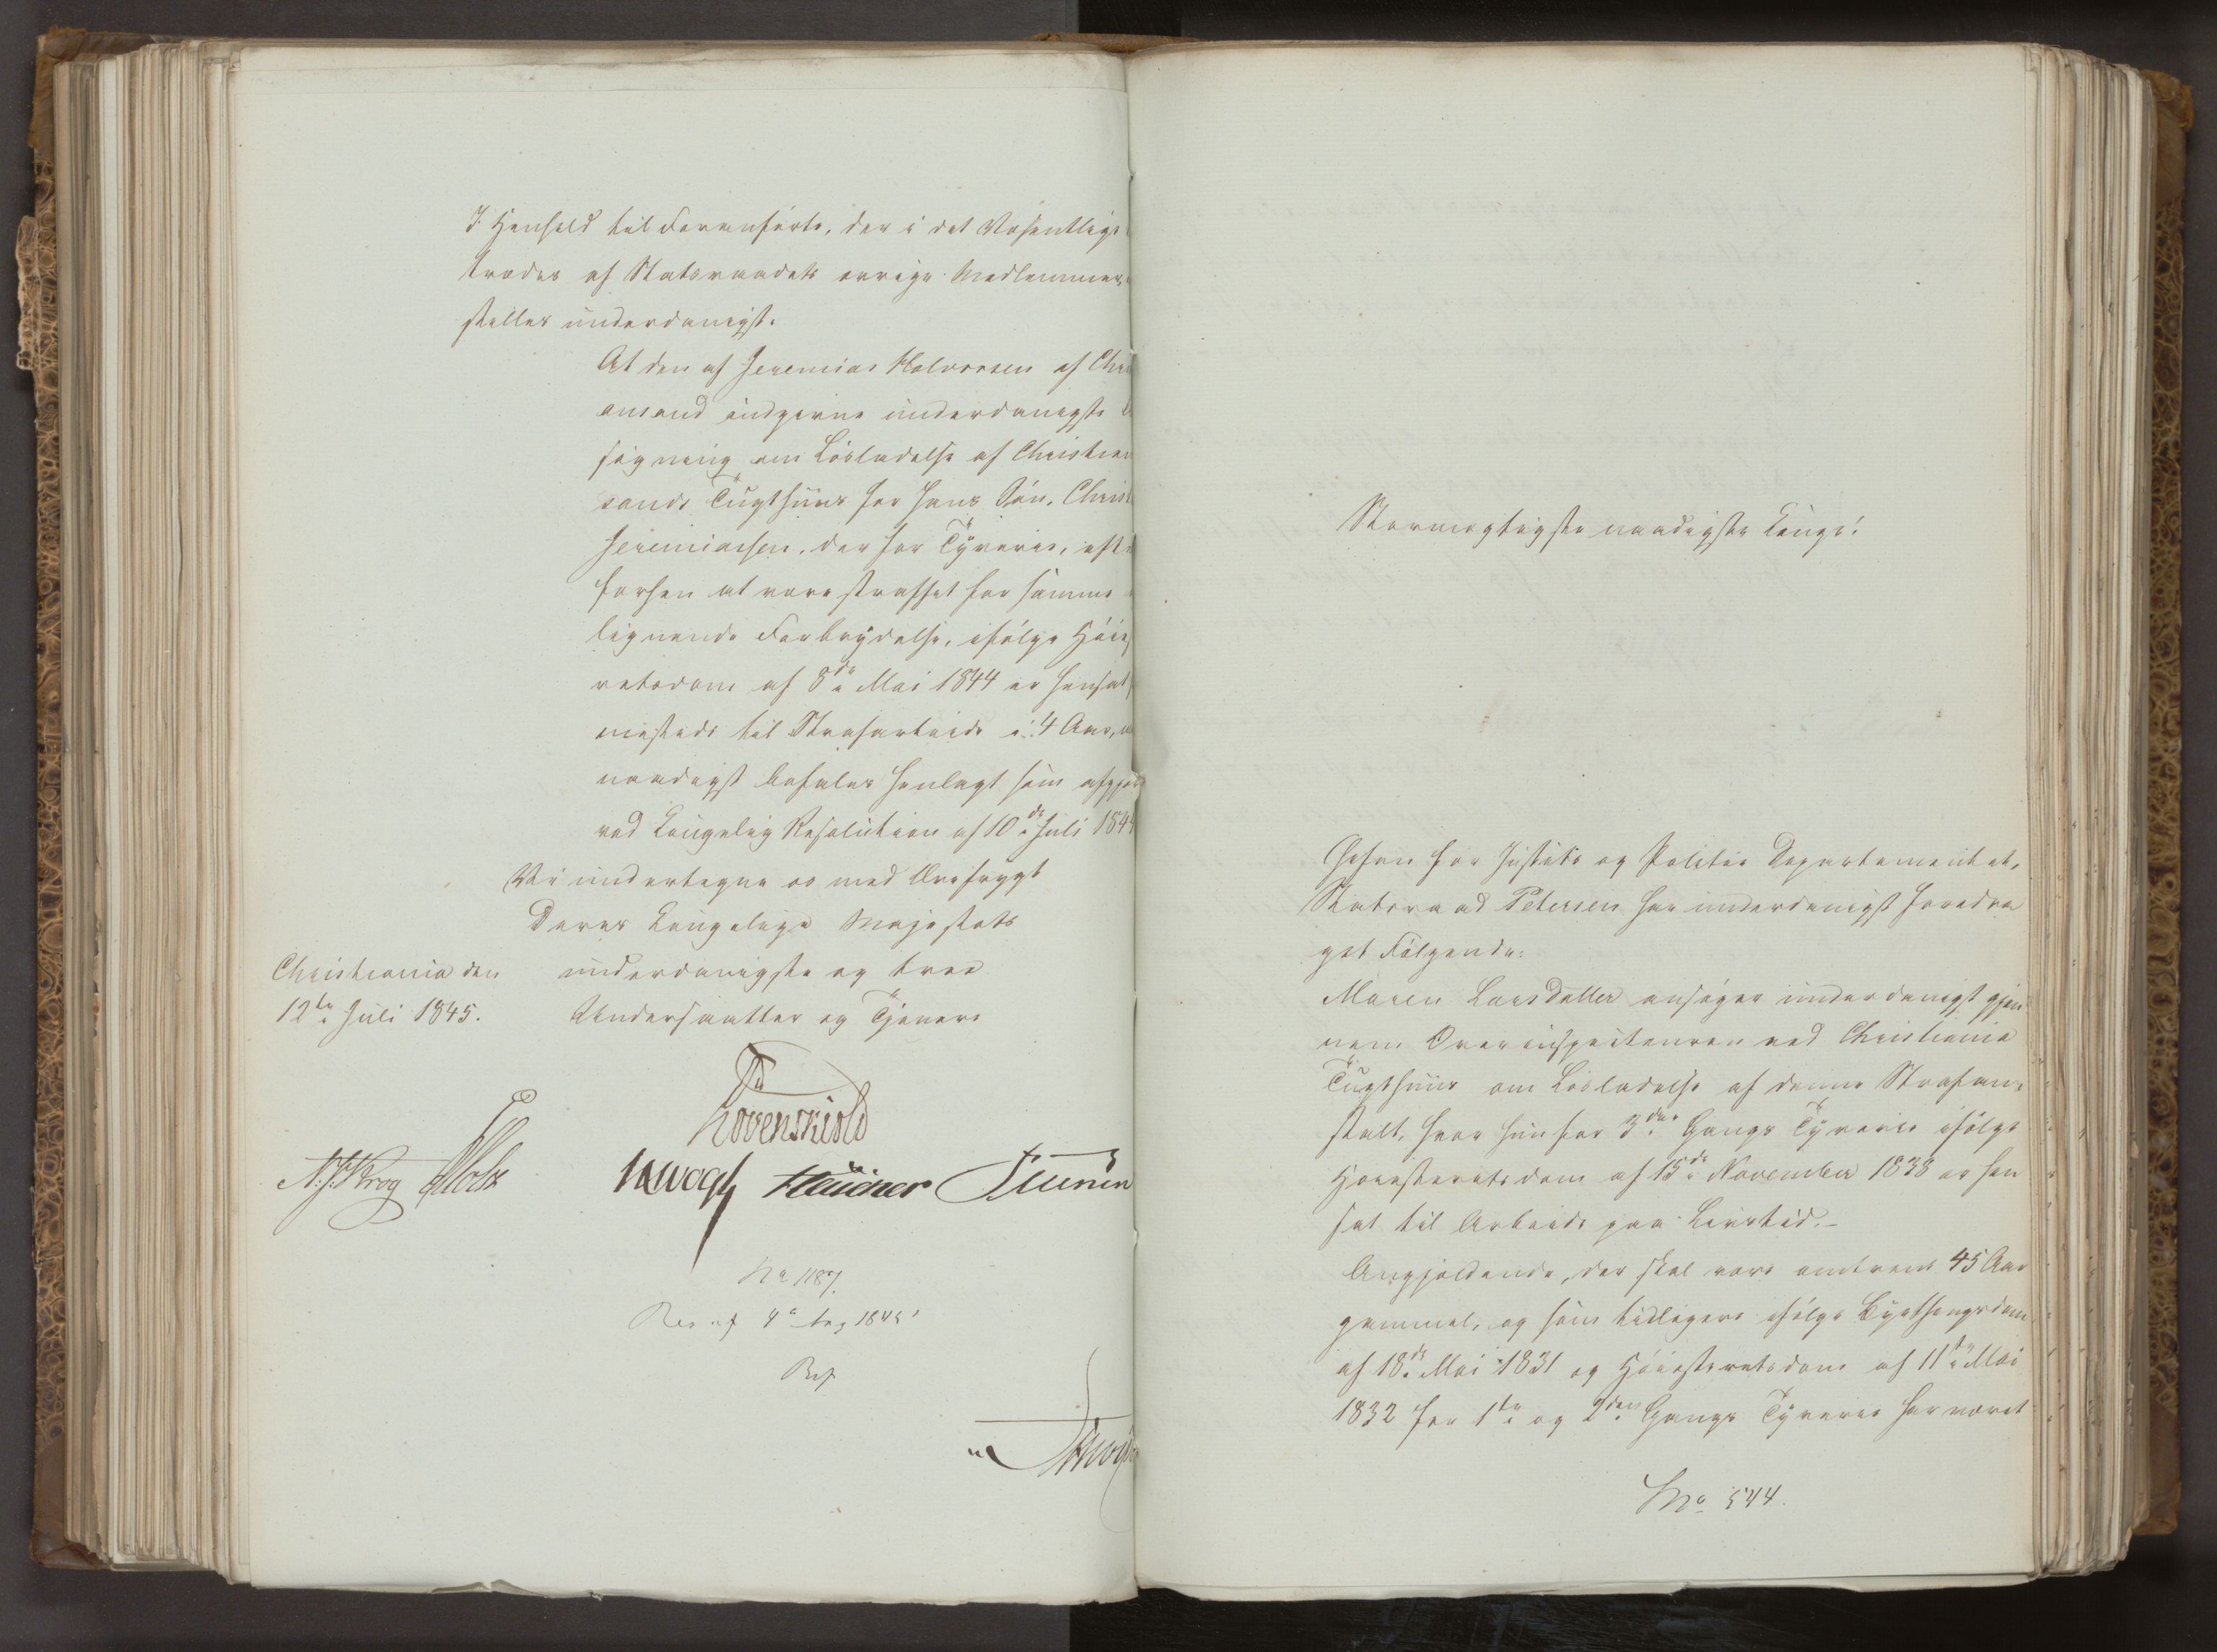 I Henhold til Foranførte, der i det Væsentlige
trædes af Statsraadets øvrige Medlemmer,
stilles underdanigst:
At den af Jeremias Halvorsen af Chri
ansand indgivne underdanigste
søgning om Løsladelse af Christian
sands Tugthuus for hans Søn, Christ
Jeremiassen, der for Tyverie, eft
forhen at være straffet for samme
lignende Forbrydelse, ifølge Høie
retsdom af 8de Mai 1844 er hensat
meststeds til Strafarbeide i 4 Aar,
naadigst befales henlagt som afgjort
ved Kongelig Resolution af 10de Juli 184
Vi undertegne os med Ærefrygt
Deres Kongelige Majestæts
Christiania den underdanigste og troe
12te Juli 1845. Undersaatter og Tjenere
Løvenskiold
N.J. Krog Holst Vogt
No 1187.
Res af 4de Aug 1845
Stormægtigste naadigste Konge!
Chefen for Justits og Politie Departementet,
Statsraad Petersen har underdanigst foredra
get Følgende:
Maren Larsdatter ansøger underdanigst gjen
nem Overinspecteuren ved Christiania
Tugthuus om Løsladelse af denne Strafan-
stalt, hvor hun for 3die Gangs Tyverie ifølge
Høiesteretsdom af 15de November 1838 er hen
sat til Arbeide paa Livstid.-
Angjældende, der skal være omtrent 45 Aar
gammel, og som tidligere ifølge Byethingsdom
af 18de Mai 1831 og Høiesteretsdom af 11te Mai
1832 for 1ste og 2den Gangs Tyverie har været
No 544.